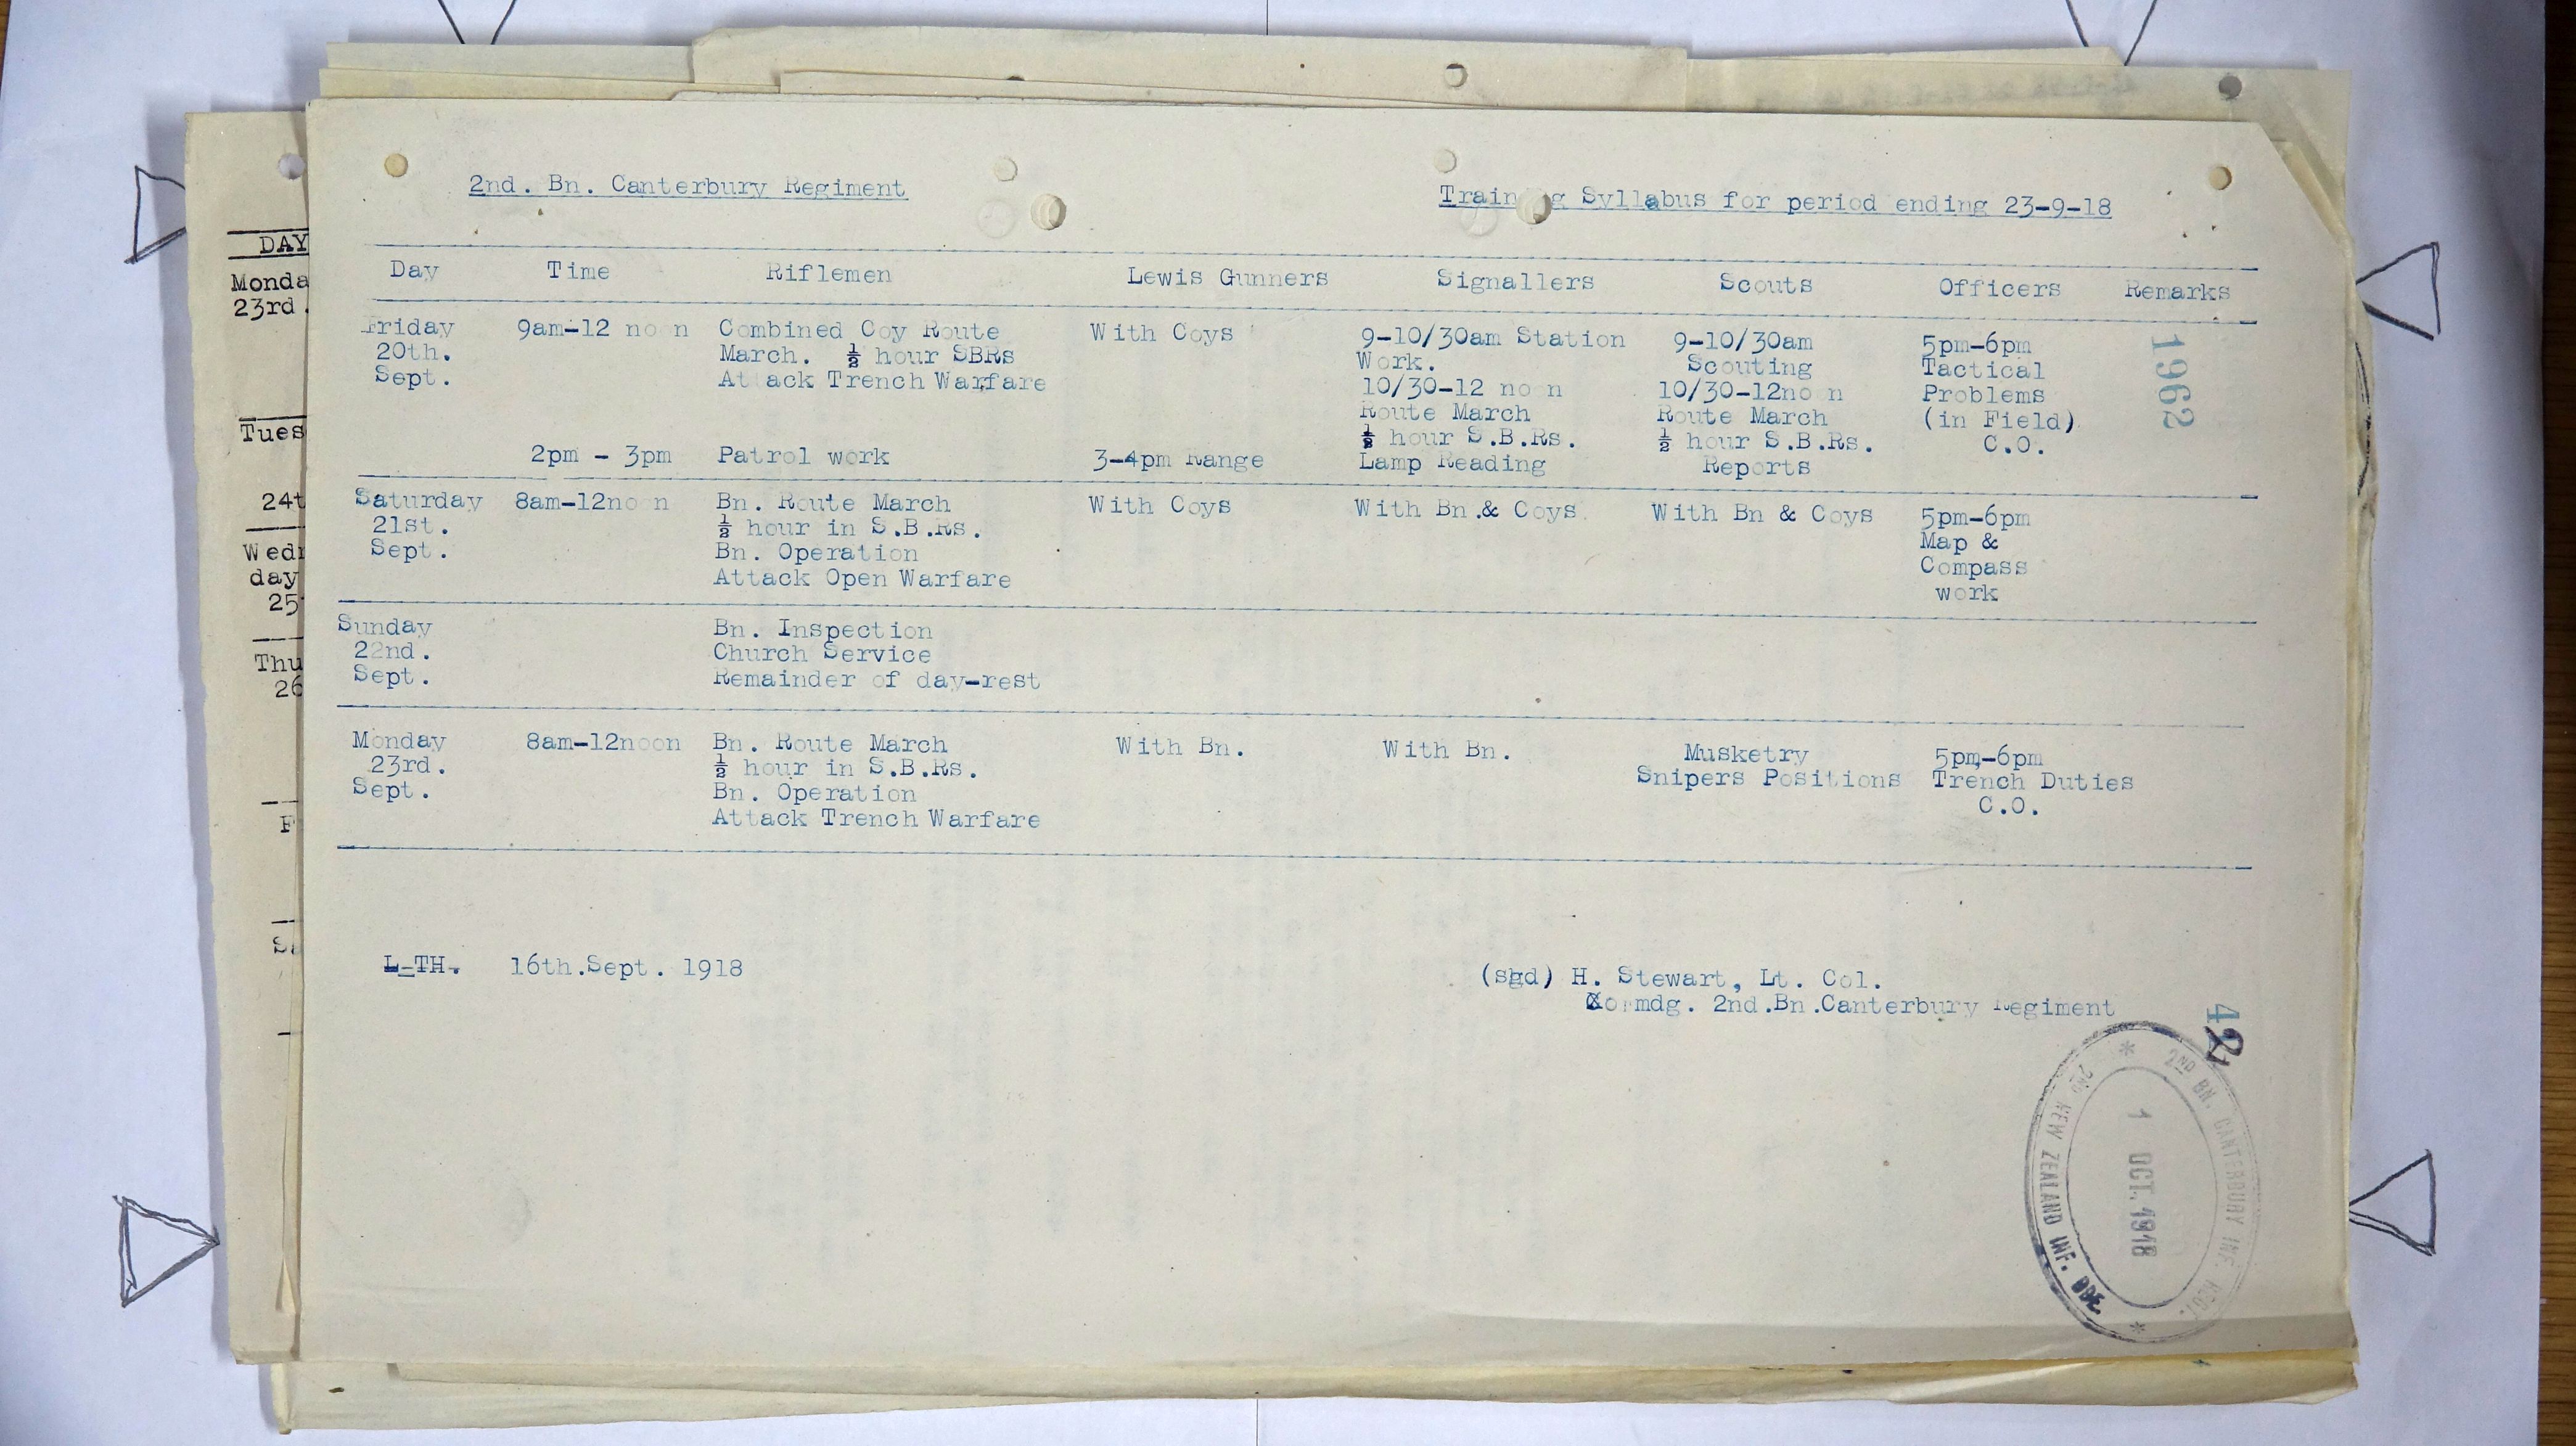 2nd. Bn. Canterbury Regiment
Training Syllabus for period ending 23-9-18
Day Time Riflemen Lewis Gunners Signallers Scouts Officers Remarks
Friday
20th.
Sept.
9am-12 noon
Combined Coy Route
March. ½ hour SBRs
Attack Trench Warfare
With Coys
9-10/30am Station
Work.
10/30-12 noon
Route March
½ hour S.B.Rs.
Lamp Reading
9-10/30am
Scouting
10/30-12noon
Route March
½ hour S.B.Rs.
Reports
5pm-6pm
Tactical
Problems
(in Field)
C.O.
1962
2pm - 3pm
Patrol work
3-4pm Range
Saturday
21st.
Sept.
8am-12noon
Bn. Route March
½ hour in S.B.Rs.
Bn. Operation
Attack Open Warfare
With Coys
With Bn.& Coys.
With Bn & Coys
5pm-6pm
Map &
Compass
work
Sunday
22nd.
Sept.
Bn. Inspection
Church Service
Remainder of day-rest
Monday
23rd.
Sept.
8am-12noon
Bn. Route March
½ hour in S.B.Rs.
Bn. Operation
Attack Trench Warfare
With Bn.
With Bn.
Musketry
Snipers Positions
5pm-6pm
Trench Duties
C.O.
L-TH. 16th.Sept. 1918
(sgd) H. Stewart, Lt. Col.
Commdg. 2nd.Bn.Canterbury Regiment
2ND BN. CANTERBURY INF. REGT.
1 OCT. 1918
2ND NEW ZEALAND INF. BDE
DAY
Monda
23rd.
Tues
24t
Wed
day
25
Thu
26
F